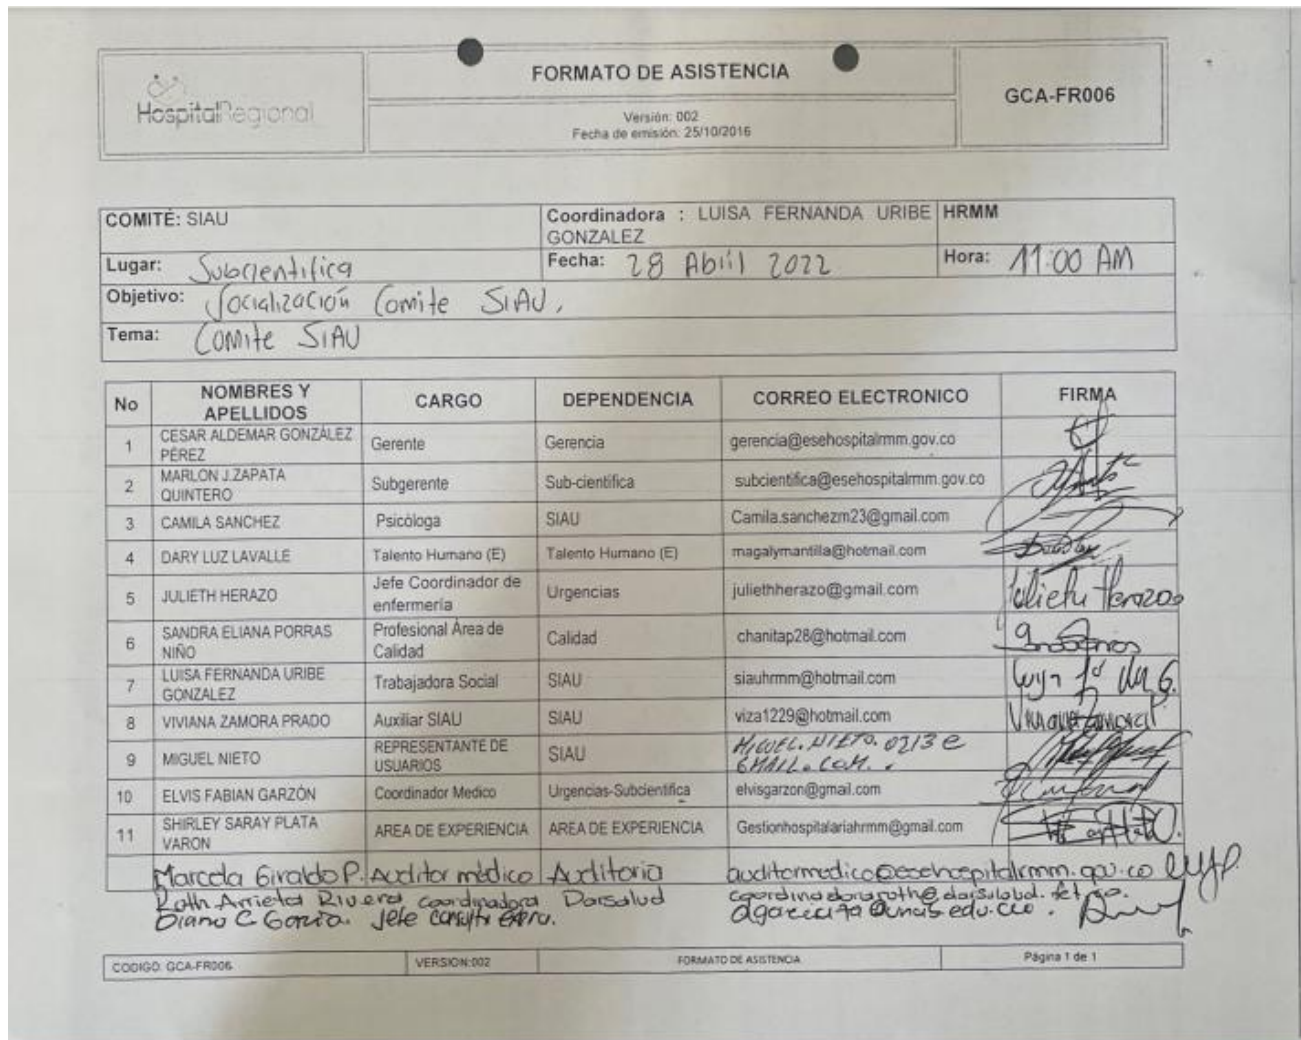 HospitalRegional
FORMATO DE ASISTENCIA
Versión: 002
Fecha de emisión: 25/10/2016
GCA-FR006
COMITÉ: SIAU
Coordinadora : LUISA FERNANDA URIBE GONZALEZ
HRMM
Lugar: Subcientifica
Fecha: 28 Abril 2022
Hora: 11:00 AM
Objetivo: Socialización Comite SIAU.
Tema: Comite SIAU
No NOMBRES Y APELLIDOS CARGO DEPENDENCIA CORREO ELECTRONICO FIRMA
1 CESAR ALDEMAR GONZÁLEZ PÉREZ Gerente Gerencia gerencia@esehospitalrmm.gov.co
2 MARLON J.ZAPATA QUINTERO Subgerente Sub-cientifica subcientifica@esehospitalrmm.gov.co
3 CAMILA SANCHEZ Psicóloga SIAU Camila.sanchezm23@gmail.com
4 DARY LUZ LAVALLE Talento Humano (E) Talento Humano (E) magalymantilla@hotmail.com
5 JULIETH HERAZO Jefe Coordinador de enfermería Urgencias juliethherazo@gmail.com Julieth Herazo
6 SANDRA ELIANA PORRAS NIÑO Profesional Área de Calidad Calidad chanitap28@hotmail.com
7 LUISA FERNANDA URIBE GONZALEZ Trabajadora Social SIAU siauhrmm@hotmail.com
8 VIVIANA ZAMORA PRADO Auxiliar SIAU SIAU viza1229@hotmail.com
9 MIGUEL NIETO REPRESENTANTE DE USUARIOS SIAU MIGUEL.NIETO.0213@ GMAIL.COM.
10 ELVIS FABIAN GARZÓN Coordinador Medico Urgencias-Subcientifica elvisgarzon@gmail.com
11 SHIRLEY SARAY PLATA VARON AREA DE EXPERIENCIA AREA DE EXPERIENCIA Gestionhospitalariahrmm@gmail.com
Marcela Giraldo P. Auditor médico Auditoria auditormedico@esehospitalrmm.gov.co
Ruth Arrieta Rivera coordinadora Darsalud
Diana C Garcia. Jefe consulta
CODIGO: GCA-FR006 VERSION:002 FORMATO DE ASISTENCIA Página 1 de 1